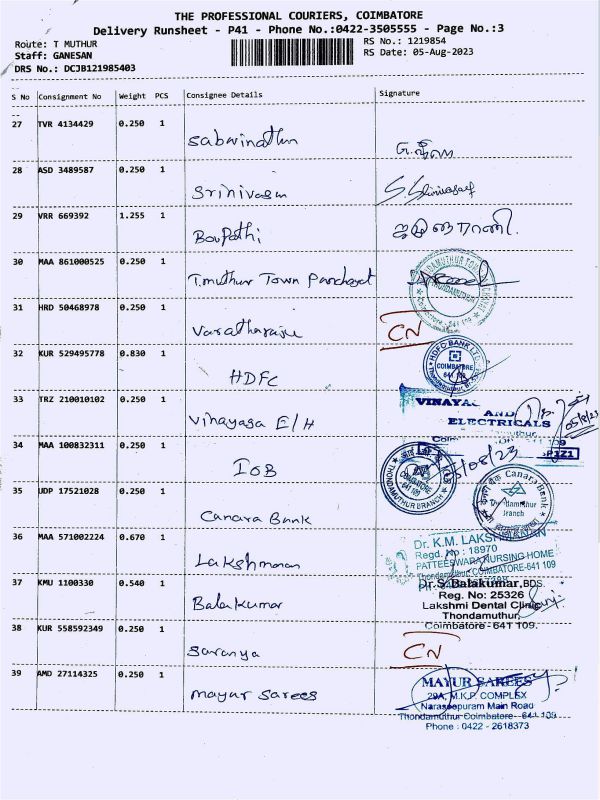 THE PROFESSIONAL COURIERS, COIMBATORE
Delivery Runsheet - P41 - Phone No.:0422-3505555 - Page No.:3
Route: T MUTHUR
RS No.: 1219854
Staff: GANESAN
RS Date: 05-Aug-2023
DRS No.: DCJB121985403
S No Consignment No Weight PCS Consignee Details Signature
27 TVR 4134429 0.250 1
Sabarinathan
28 ASD 3489587 0.250 1
Srinivasan S. Srinivasan
29 VRR 669392 1.255 1
Boopathi
30 MAA 861000525 0.250 1
T.muthur Town Panchayat
31 HRD 50468978 0.250 1
Varatharaju CN
32 KUR 529495778 0.830 1
HDFC
HDFC BANK LTD.
COIMBATORE
641 109
33 TRZ 210010102 0.250 1
Vinayaga E/H
VINAYAG
AND
ELECTRICALS
05/8/23
34 MAA 100832311 0.250 1
IOB
THONDAMUTHUR BRANCH
COIMBATORE
641 109
/08/23
35 UDP 17521028 0.250 1
Canara Bank
Canara Bank
Branch
36 MAA 571002224 0.670 1
Lakshmanan
Dr. K.M. LAKSHMANAN
Regd. No : 18970
PATTEESWARA NURSING HOME
Thondamuthur COIMBATORE-641 109
37 KMU 1100330 0.540 1
Balakumar
Dr. S. Balakumar, BDS.
Reg. No: 25326
Lakshmi Dental Clinic
Thondamuthur,
Coimbatore - 641 109.
38 KUR 558592349 0.250 1
Saranya CN
39 AMD 27114325 0.250 1
Mayur Sarees
MAYUR SAREES
29A, M.K.P. COMPLEX
Naraseepuram Main Road
Thondamuthur Coimbatore - 641 109
Phone : 0422 - 2618373